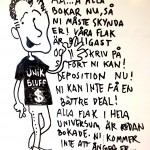 BOKAR NU, SÅ
NI MÅSTE SKYNDA
ER! VÅRA FLAK
ÄR
OCH SKRIV PÅ
FORT NI KAN!
DEPOSITION NU!
NI KAN INTE FÅ EN
BÄTTRE DEAL!
ALLA FLAK I HELA
UNIVERSUM ÄR REDAN
BOKADE. NI KOMMER
INTE ATT ÅNGRA ER
UNIK
BLUFF